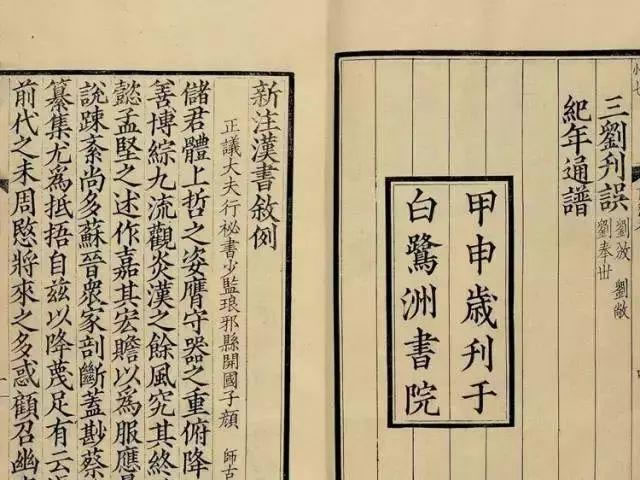 三劉刋誤 劉攽 劉敞 劉奉世
紀年通譜
甲申歲刊于
白鷺洲書院
新注漢書敘例
正議大夫行祕書少監琅邪縣開國子顏 師古
儲君體上哲之姿膺守器之重俯降
善博綜九流觀炎漢之餘風究其終
懿孟堅之述作嘉其宏贍以爲服應
說踈紊尚多蘇晉衆家剖斷蓋尠蔡
纂集尤爲抵捂自兹以降蔑足有云
前代之未周愍將來之多惑顧召幽